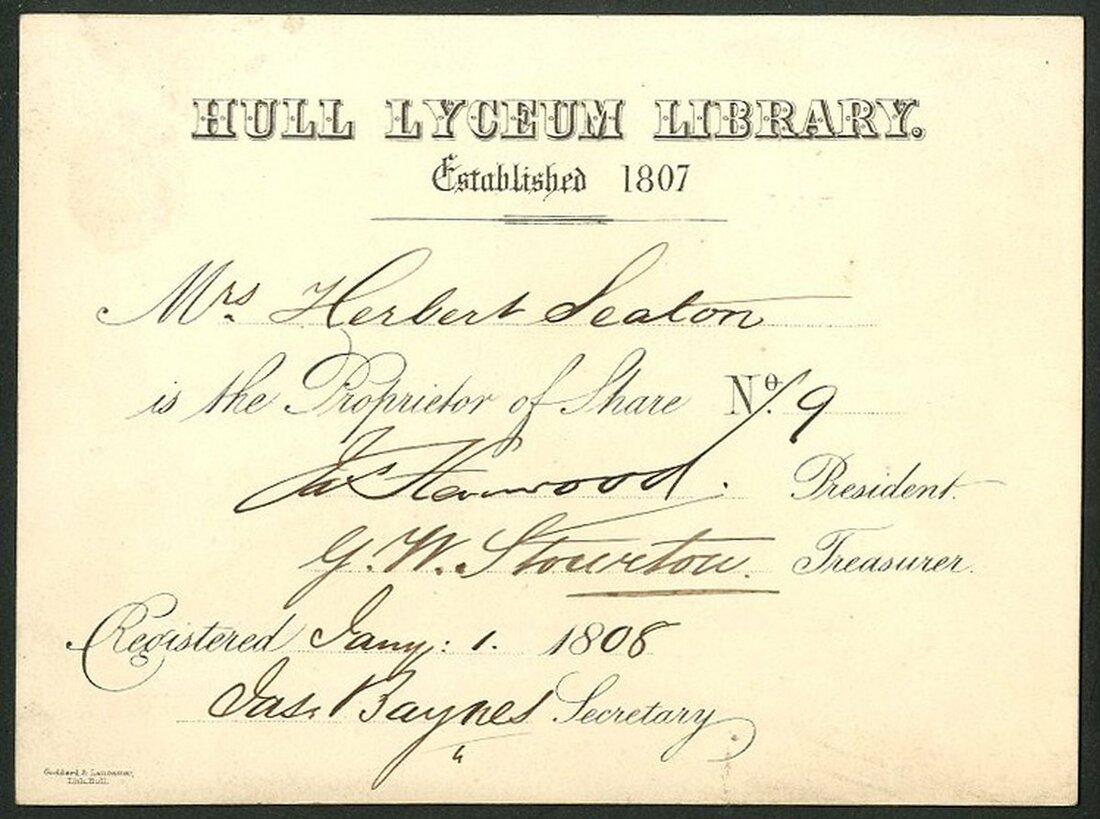 HULL LYCEUM LIBRARY.
Established 1807
Mrs. Herbert Seaton
is the Proprietor of Share No. 9
Jas Henwood. President.
G. W. Stourton. Treasurer.
Registered Jany: 1. 1808
Jas. Baynes Secretary
Goddard &
Lith. Hull.